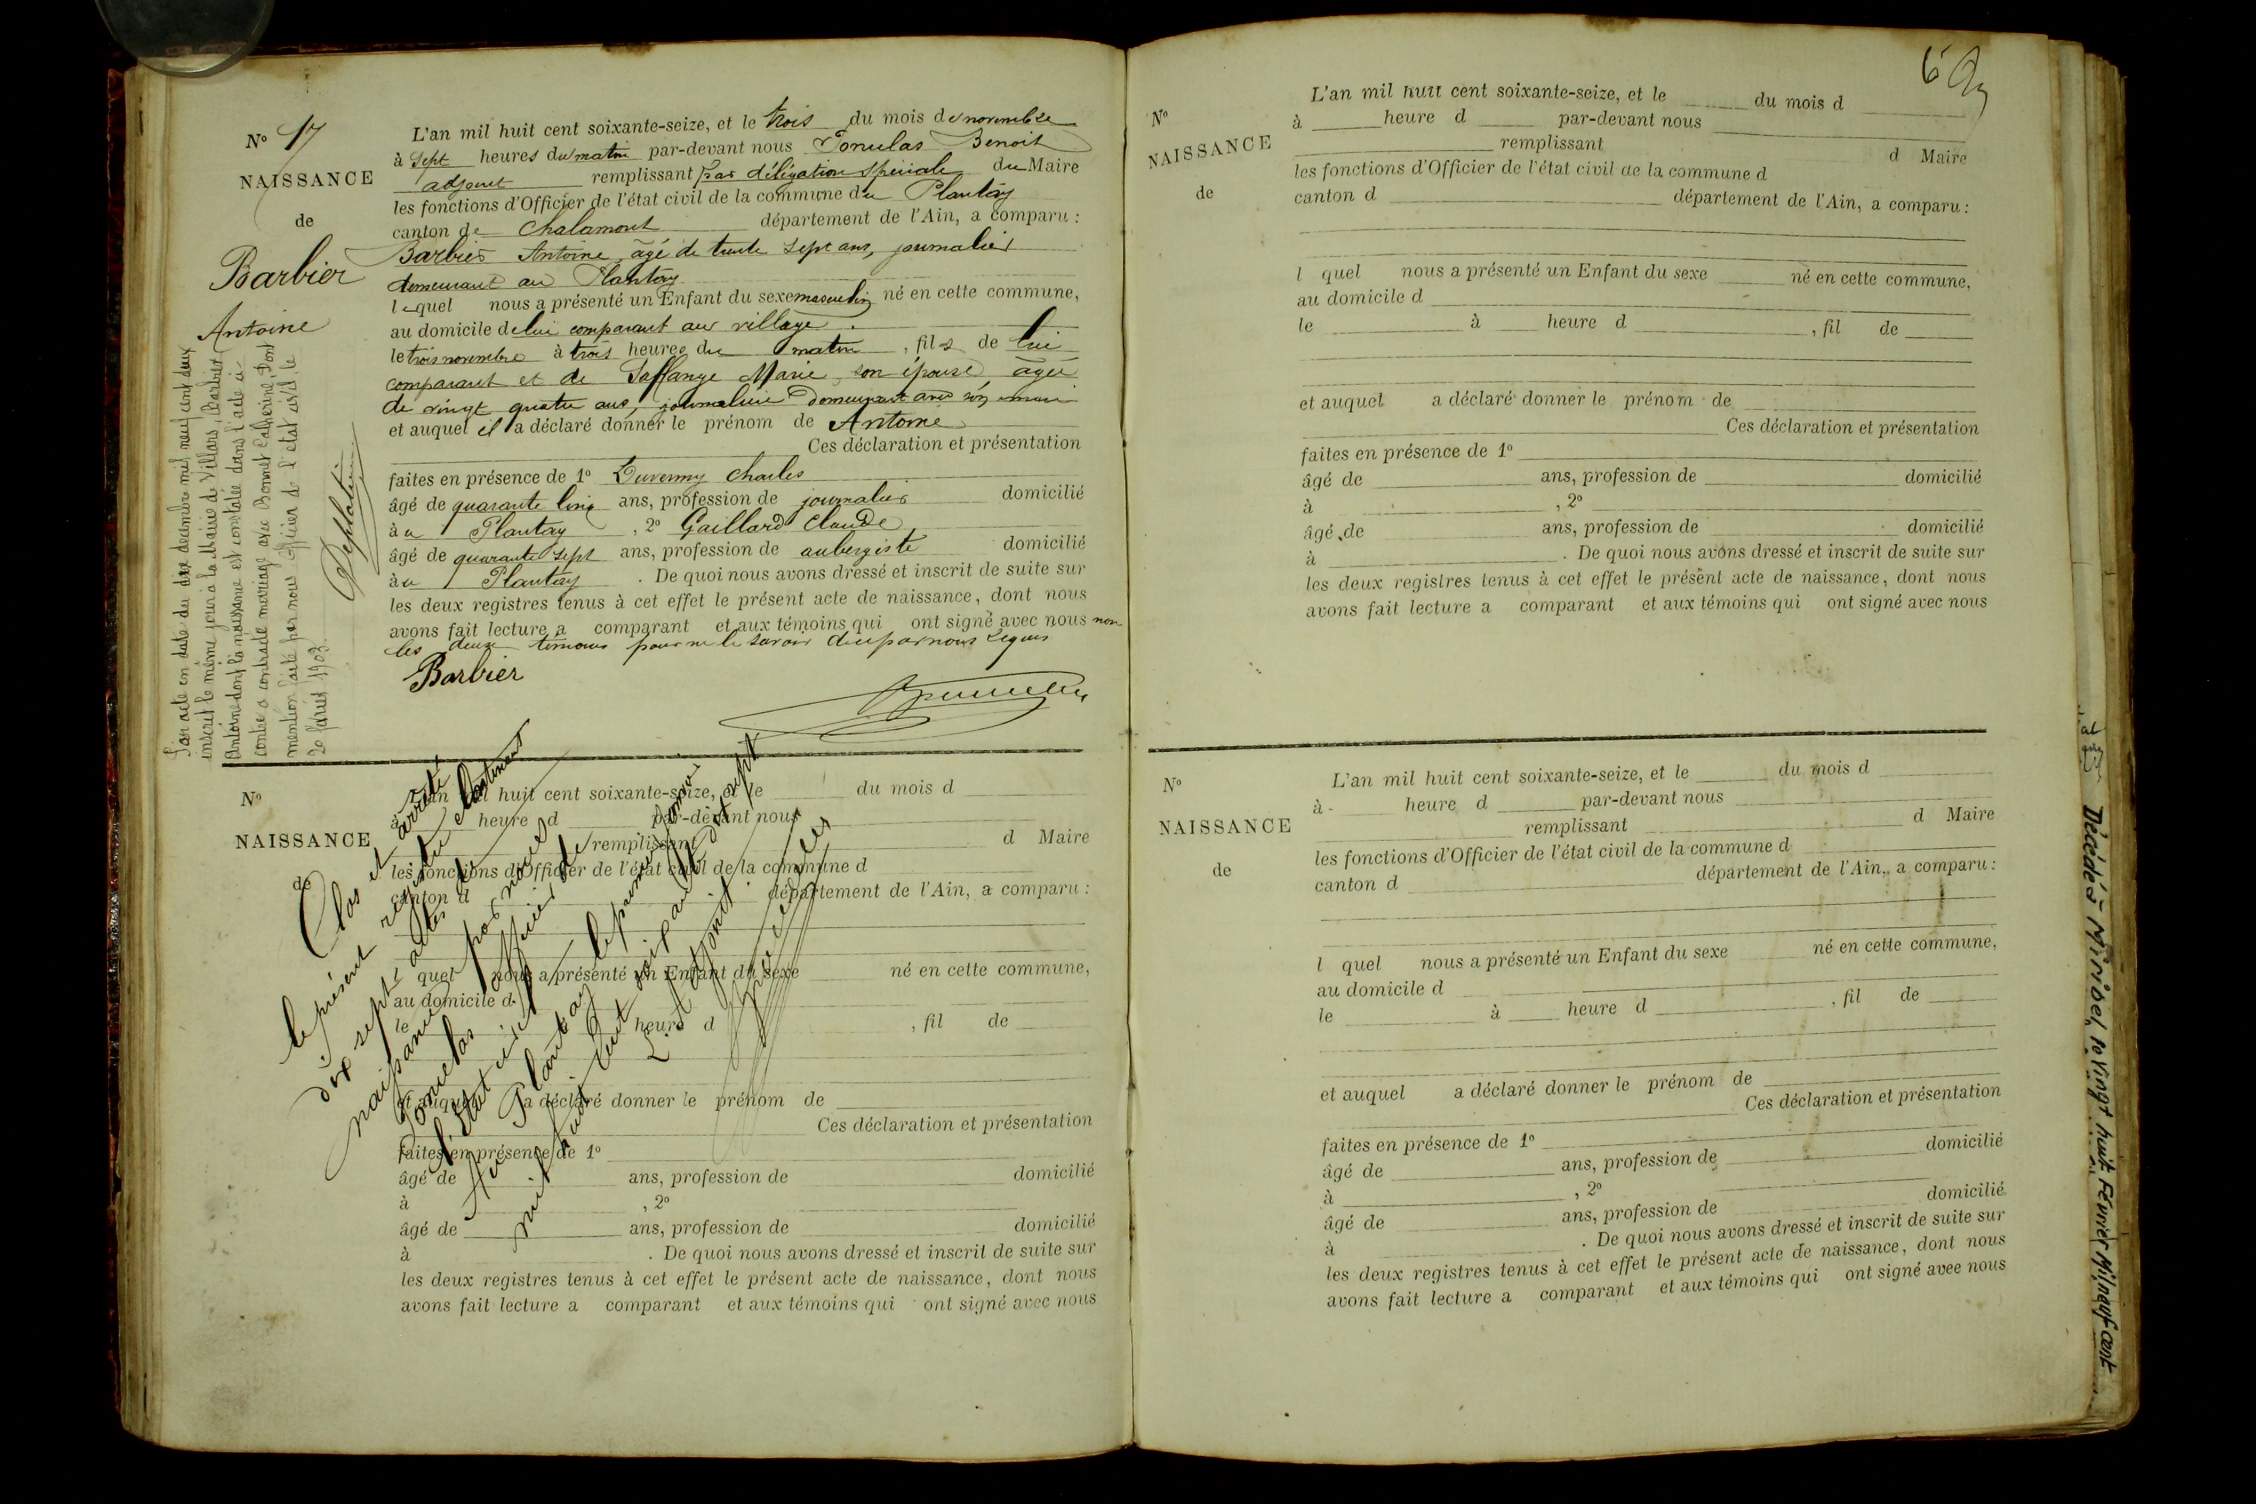 N° 17
NAISSANCE
de
Barbier
Antoine
L'an mil huit cent soixante-seize, et le trois du mois de novembre
à sept heures du matin par-devant nous Benoit
adjoint remplissant par délégation spéciale du Maire
les fonctions d'Officier de l'état civil de la commune du Plantay
canton de Chalamont département de l'Ain, a comparu :
Barbier Antoine, âgé de trente sept ans, journalier
demeurant au Plantay
lequel nous a présenté un Enfant du sexe masculin né en cette commune,
au domicile de lui comparant au village
le trois novembre à trois heures du matin , fils de lui
comparant et de Marie, son épouse, âgée
de vingt quatre ans, journalière demeurant avec son mari
et auquel il a déclaré donner le prénom de Antoine
Ces déclaration et présentation
faites en présence de 1° Charles
âgé de quarante cinq ans, profession de journalier domicilié
au Plantay , 2° Gaillard Claude
âgé de quarante sept ans, profession de aubergiste domicilié
au Plantay . De quoi nous avons dressé et inscrit de suite sur
les deux registres tenus à cet effet le présent acte de naissance, dont nous
avons fait lecture a comparant et aux témoins qui ont signé avec nous non
les deux témoins pour ne le savoir de ce par nous requis
Barbier
Par acte en date du dix décembre mil neuf cent deux
inscrit le même jour à la Mairie de Villars, Barbier
Antoine dont la naissance est constatée dans l'acte ci-
contre a contracté mariage avec Bonnet Catherine, Dont
mention faite par nous officier de l'état civil le
20 février 1903
N°
NAISSANCE
de
L'an mil huit cent soixante-seize, et le du mois d
à heure d par-devant nous
remplissant d Maire
les fonctions d'Officier de l'état civil de la commune d
canton d département de l'Ain, a comparu :
l quel nous a présenté un Enfant du sexe né en cette commune,
au domicile d
le à heure d , fil de
et auquel a déclaré donner le prénom de
Ces déclaration et présentation
faites en présence de 1°
âgé de ans, profession de domicilié
à , 2°
âgé de ans, profession de domicilié
à . De quoi nous avons dressé et inscrit de suite sur
les deux registres tenus à cet effet le présent acte de naissance, dont nous
avons fait lecture a comparant et aux témoins qui ont signé avec nous
Clos et arrêté
le présent registre contenant
dix sept actes de
naissances par nous
officier de
l'État civil
du Plantay le premier janvier
mil huit cent soixante dix sept
L'adjoint
N°
NAISSANCE
de
L'an mil huit cent soixante-seize, et le du mois d
à heure d par-devant nous
remplissant d Maire
les fonctions d'Officier de l'état civil de la commune d
canton d département de l'Ain, a comparu :
l quel nous a présenté un Enfant du sexe né en cette commune,
au domicile d
le à heure d , fil de
et auquel a déclaré donner le prénom de
Ces déclaration et présentation
faites en présence de 1°
âgé de ans, profession de domicilié
à , 2°
âgé de ans, profession de domicilié
à . De quoi nous avons dressé et inscrit de suite sur
les deux registres tenus à cet effet le présent acte de naissance, dont nous
avons fait lecture a comparant et aux témoins qui ont signé avec nous
N°
NAISSANCE
de
L'an mil huit cent soixante-seize, et le du mois d
à heure d par-devant nous
remplissant d Maire
les fonctions d'Officier de l'état civil de la commune d
canton d département de l'Ain, a comparu :
l quel nous a présenté un Enfant du sexe né en cette commune,
au domicile d
le à heure d , fil de
et auquel a déclaré donner le prénom de
Ces déclaration et présentation
faites en présence de 1°
âgé de ans, profession de domicilié
à , 2°
âgé de ans, profession de domicilié
à . De quoi nous avons dressé et inscrit de suite sur
les deux registres tenus à cet effet le présent acte de naissance, dont nous
avons fait lecture a comparant et aux témoins qui ont signé avec nous
Décédé à Miribel, le Vingt huit Février Mil neuf cent